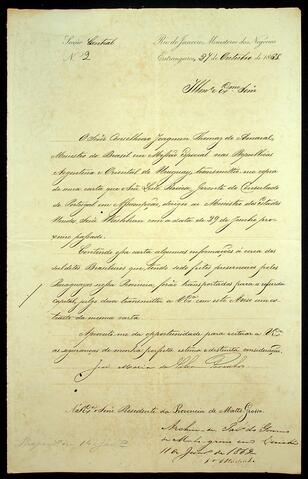 Secção Central
N.º 2
Rio de Janeiro, Ministerio dos Negocios
Estrangeiros, 27 de Outubro de 1865
Illmo. e Exmo. Snr
O Snr. Conselheiro Joaquim Thomaz do Amaral,
Ministro do Brasil em Missão Especial nas Republicas
Argentina e Oriental do Uruguay, transmittio-me copia
de uma carta que o Snr. Leite Pereira, gerente do Consulado
de Portugal em Assumpção, dirigio ao Ministro dos Estados
Unidos Snr. Washburn com a data de 29 de Junho pro-
ximo passado.
Contendo essa carta algumas informações á cerca dos
subditos Brasileiros que, tendo sido feitos prisioneiros pelos
Paraguayos nessa Provincia, forão transportados para a referida
capital, julgo dever transmittir a V. Ex. com este Aviso um ex-
tracto da mesma carta.
Aproveito-me da opportunidade para reiterar a V. Ex.
as seguranças de minha perfeita estima e distincta consideração.
José Antonio
A S. Ex. o Snr. Presidente da Provincia de Matto Grosso.
Archive-se. Pal. do Governo
de Matto grosso em Cuiabá
11 de